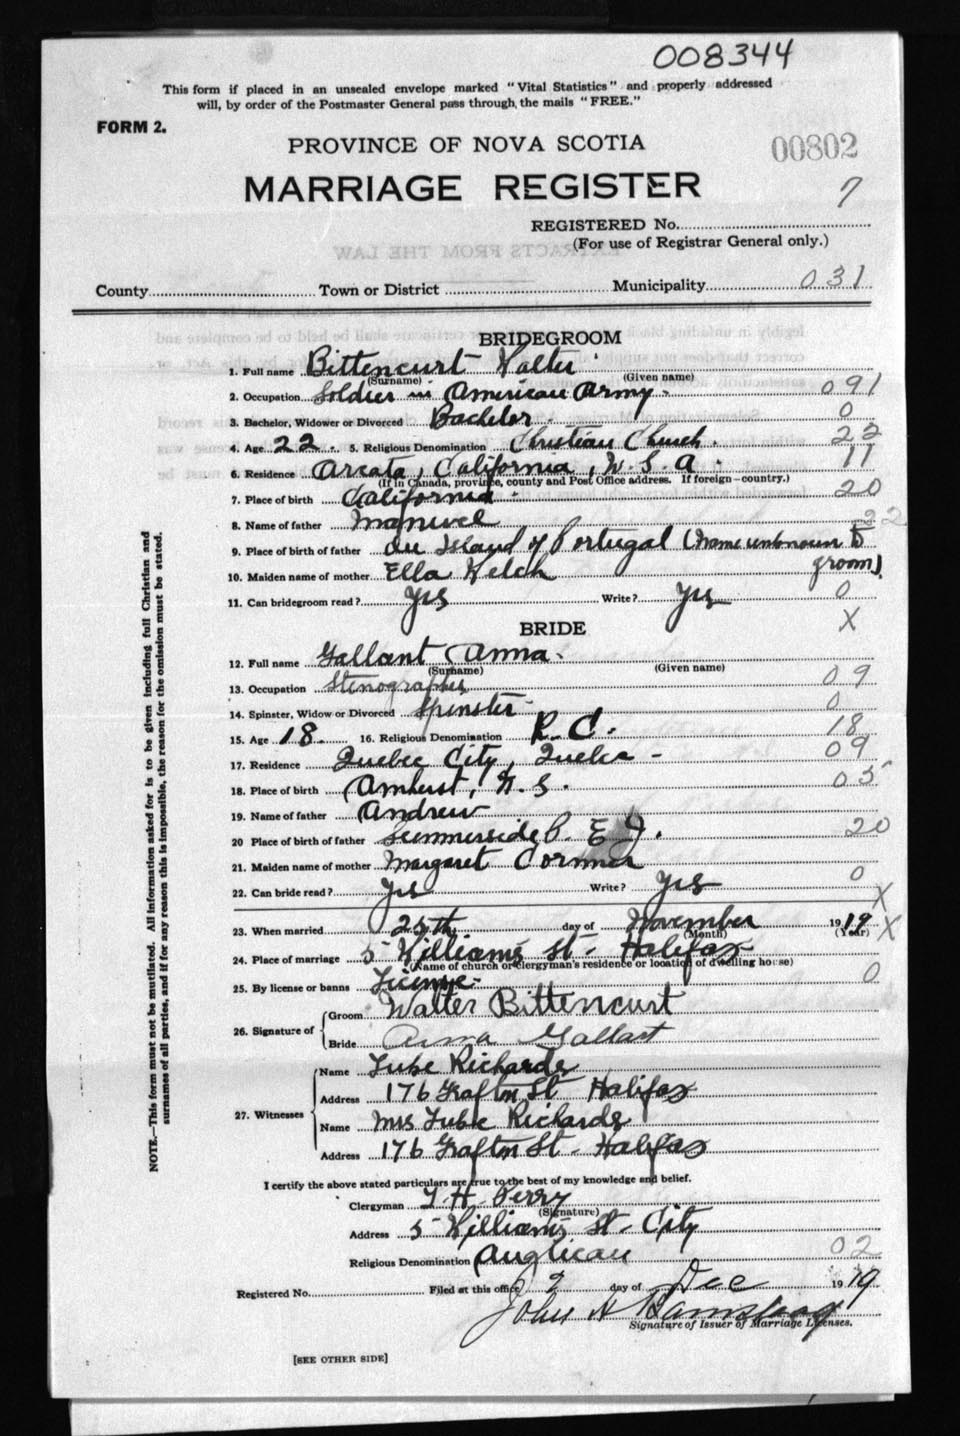 008344
This form if placed in an unsealed envelope marked "Vital Statistics" and properly addressed
will, by order of the Postmaster General pass through the mails "FREE."
FORM 2.
PROVINCE OF NOVA SCOTIA
00802
MARRIAGE REGISTER
7
REGISTERED No.
(For use of Registrar General only.)
EXTRACTS FROM THE LAW
County Town or District Municipality 031
BRIDEGROOM
1. Full name Bittencurt Walter
(Surname) (Given name)
2. Occupation Soldier in American Army. 091
3. Bachelor, Widower or Divorced Bachelor. 0
4. Age 22. 5. Religious Denomination Christian Church. 22
6. Residence Arcata, California, U.S.A. 11
(If in Canada, province, county and Post Office address. If foreign—country.)
7. Place of birth California 20
8. Name of father Manuel 22
9. Place of birth of father an Island of Portugal (name unknown to
groom)
10. Maiden name of mother Ella Welch
11. Can bridegroom read? Yes Write? Yes 0
X
BRIDE
12. Full name Gallant Anna.
(Surname) (Given name)
13. Occupation Stenographer 09
14. Spinster, Widow or Divorced Spinster 0
15. Age 18. 16. Religious Denomination R.C. 18
17. Residence Quebec City, Quebec - 09
18. Place of birth Amherst, N.S. 05
19. Name of father Andrew
20 Place of birth of father Summerside P.E.I. 20
21. Maiden name of mother Margaret Cormier
22. Can bride read? Yes Write? Yes 0
X
23. When married 25th day of November 1919 X
(Month) (Year)
24. Place of marriage 5 Williams St - Halifax
(Name of church or clergyman's residence or location of dwelling house)
25. By license or banns License- 0
26. Signature of Groom Walter Bittencurt
Bride Anna Gallant
27. Witnesses Name Richards
Address 176 Grafton St Halifax
Name Mrs Richards
Address 176 Grafton St - Halifax
I certify the above stated particulars are true to the best of my knowledge and belief.
Clergyman Perry
(Signature)
Address 5 Williams St - City
Religious Denomination Anglican 02
Registered No. Filed at this office 2 day of Dec 1919
John
Signature of Issuer of Marriage Licenses.
[SEE OTHER SIDE]
NOTE.—This form must not be mutilated. All information asked for is to be given including full Christian and
surnames of all parties, and if for any reason this is impossible, the reason for the omission must be stated.